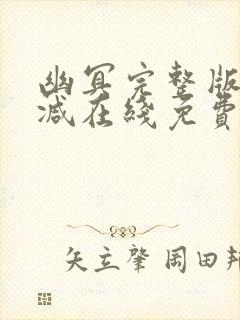 幽冥完整版
减在綫免費
矢立肇 岡田邦